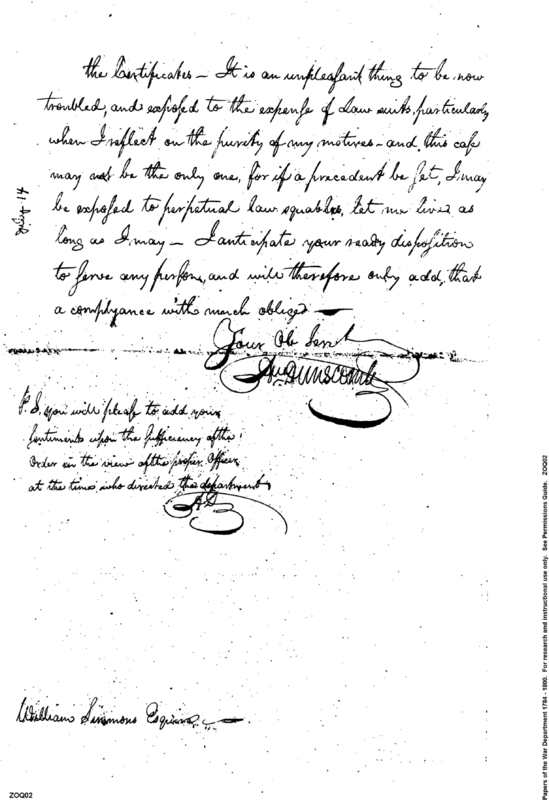 the Certificates – It is an unpleasant thing to be now
troubled, and exposed to the expense of Law suits, particularly
when I reflect on the purity of my motives – and this case
may not be the only one, for if a precedent be set, I may
be exposed to perpetual law squabbles, let me live as
long as I may – I anticipate your ready disposition
to serve any person, and will therefore only add, that
a complyance with much oblige
Your Ob Serv
Aw Dunscomb
P.S. you will please to add your
Sentiments upon the sufficiency of the
Order in the view of the proper Officer
at the time who directed the department
AD
William Simmons Esquire
July 14
ZOQ02
Papers of the War Department 1784 - 1800. For research and instructional use only. See Permissions Guide. ZOQ02